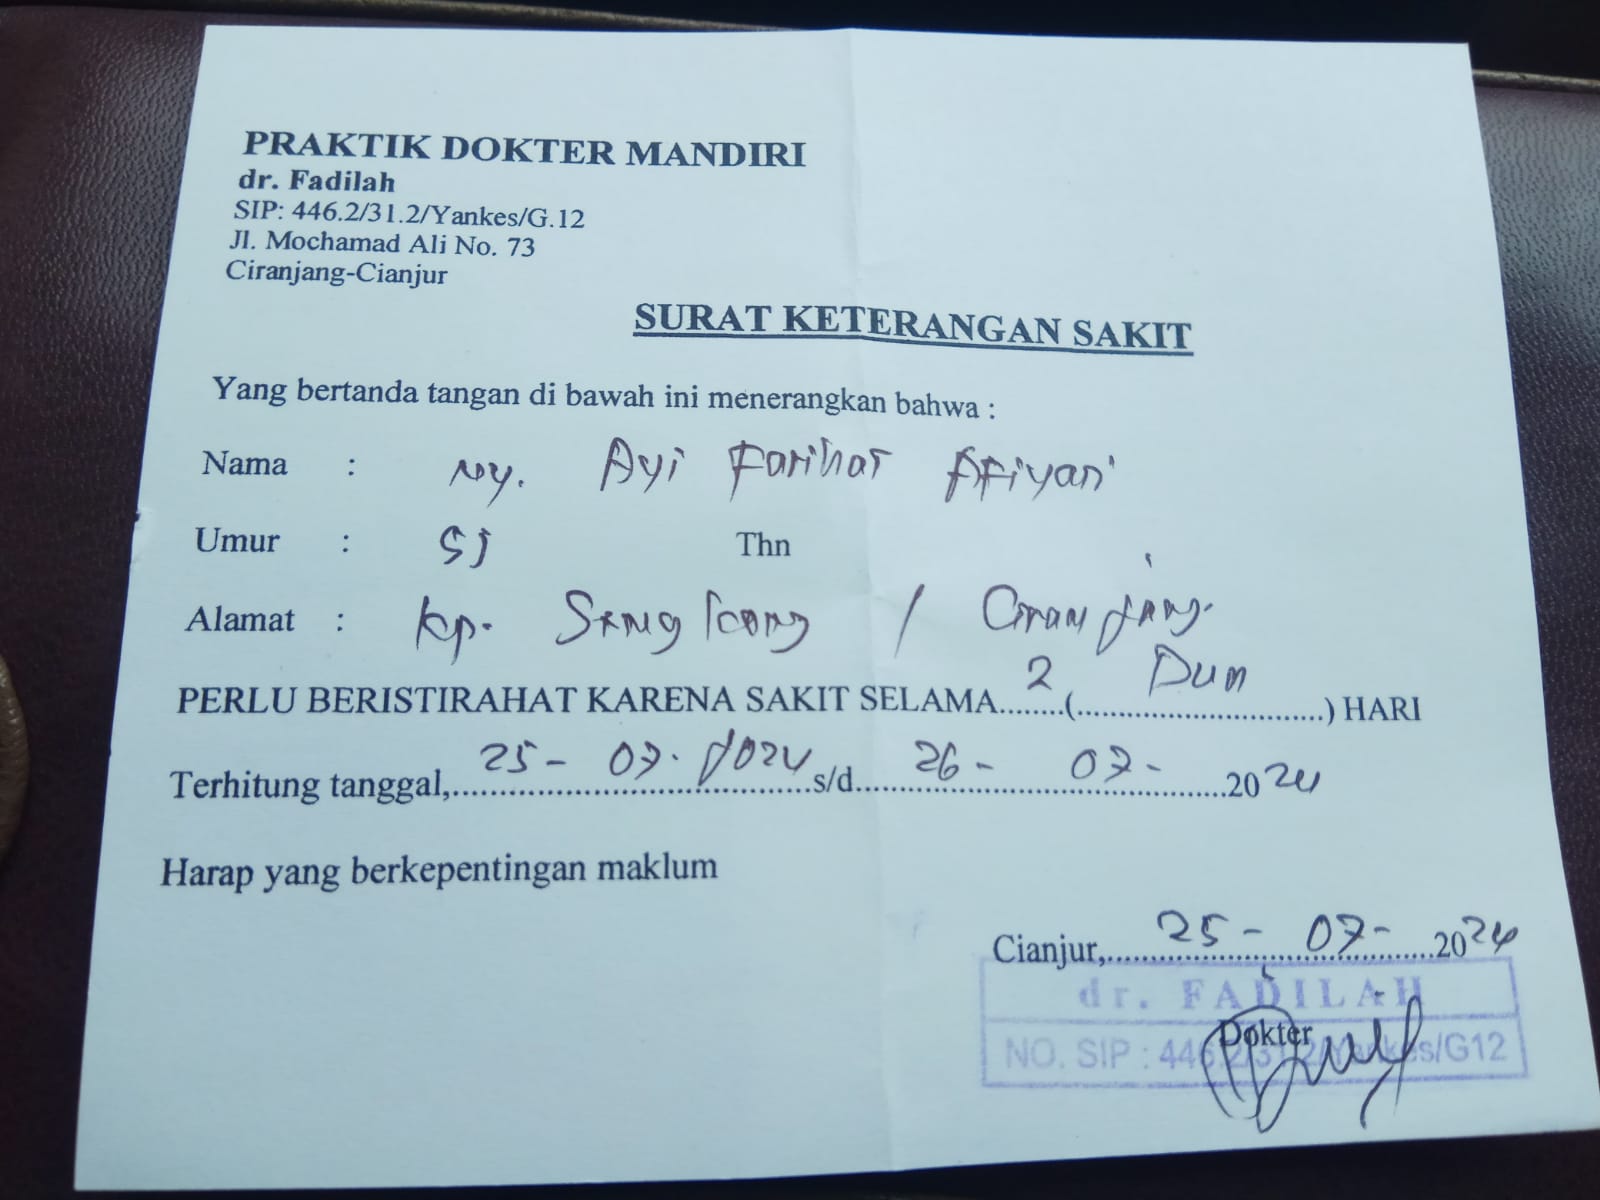 PRAKTIK DOKTER MANDIRI
dr. Fadilah
SIP: 446.2/31.2/Yankes/G.12
Jl. Mochamad Ali No. 73
Ciranjang-Cianjur
SURAT KETERANGAN SAKIT
Yang bertanda tangan di bawah ini menerangkan bahwa :
Nama : Ny. Ayi Farihat Afiyani
Umur : Thn
Alamat : Kp. / Ciranjang
PERLU BERISTIRAHAT KARENA SAKIT SELAMA........2(..............................Dua) HARI
Terhitung tanggal,.....25-07-2024 s/d.....26-07-2024
Harap yang berkepentingan maklum
Cianjur,.....25-07-2024
dr. FADILAH
Dokter
NO. SIP : 446.2/31.2/Yankes/G12